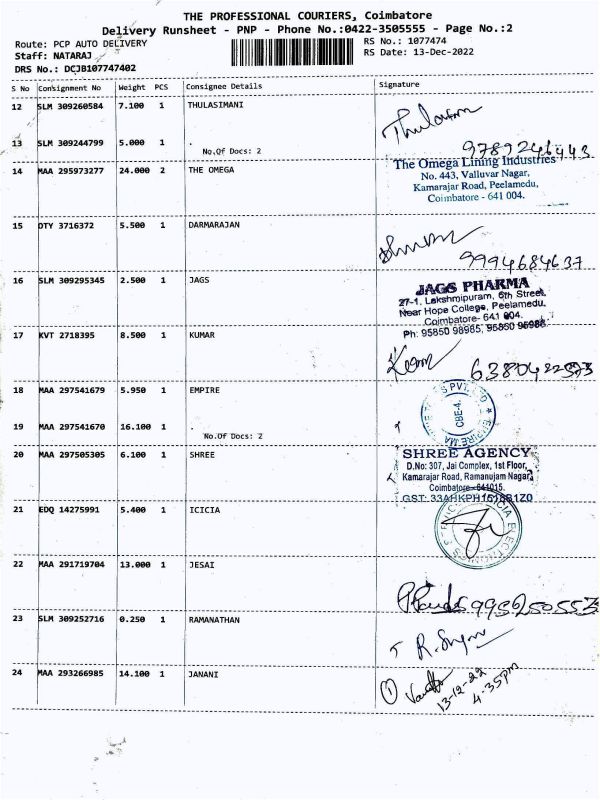 THE PROFESSIONAL COURIERS, Coimbatore
Delivery Runsheet - PNP - Phone No.:0422-3505555 - Page No.:2
Route: PCP AUTO DELIVERY RS No.: 1077474
Staff: NATARAJ RS Date: 13-Dec-2022
DRS No.: DCJB107747402
S No Consignment No Weight PCS Consignee Details Signature
12 SLM 309260584 7.100 1 THULASIMANI
13 SLM 309244799 5.000 1 .
No.Of Docs: 2
9789246443
14 MAA 295973277 24.000 2 THE OMEGA
The Omega Lining Industries
No. 443, Valluvar Nagar,
Kamarajar Road, Peelamedu,
Coimbatore - 641 004.
15 DTY 3716372 5.500 1 DARMARAJAN
9994684637
16 SLM 309295345 2.500 1 JAGS
JAGS PHARMA
27-1, Lakshmipuram, 6th Street,
Near Hope College, Peelamedu,
Coimbatore- 641 004.
Ph: 95850 98985,
17 KVT 2718395 8.500 1 KUMAR
18 MAA 297541679 5.950 1 EMPIRE
CBE-4.
19 MAA 297541670 16.100 1 .
No.Of Docs: 2
20 MAA 297505305 6.100 1 SHREE
SHREE AGENCY
D.No: 307, Jai Complex, 1st Floor,
Kamarajar Road, Ramanujam Nagar,
Coimbatore-641015.
21 EDQ 14275991 5.400 1 ICICIA
22 MAA 291719704 13.000 1 JESAI
23 SLM 309252716 0.250 1 RAMANATHAN
24 MAA 293266985 14.100 1 JANANI
13-12-22
4.35pm